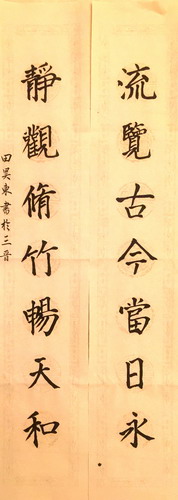 流覽古今當日永
靜觀脩竹暢天和
田昊東書於三晉